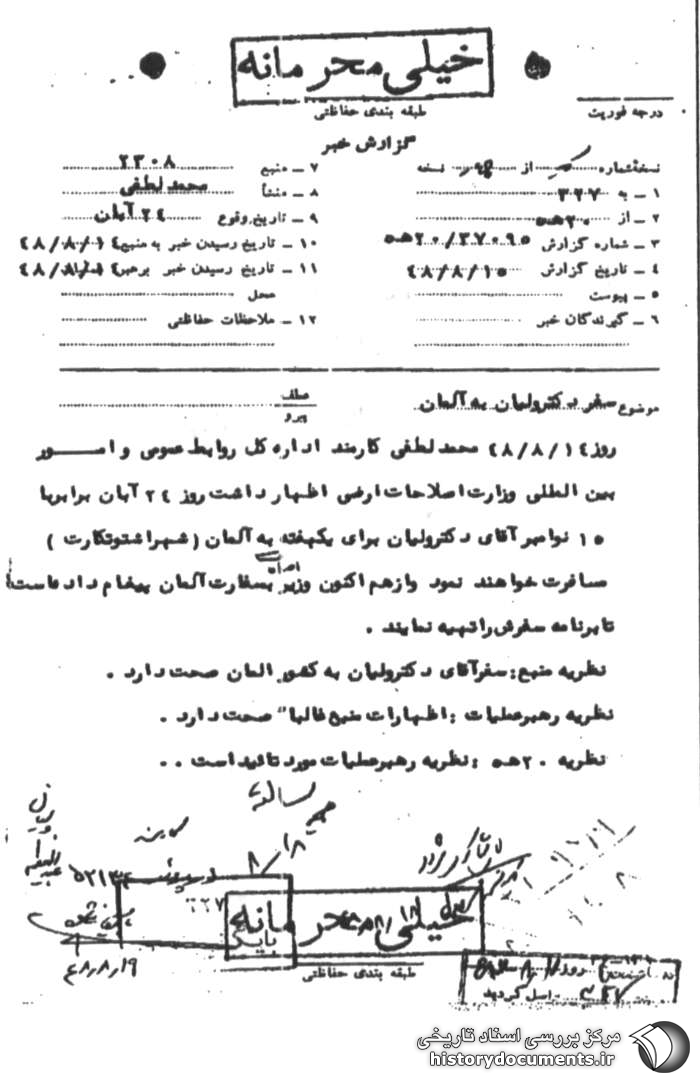 خیلی محرمانه
طبقه بندی حفاظتی
درجه فوریت
گزارش خبر
نسخهٔ شماره از نسخه
۱ ـ به ۳۲۷
۲ ـ از ۲۰ هـ ۵
۳ ـ شماره گزارش ۲۰/۳۷۰۹۵ هـ ۵
۴ ـ تاریخ گزارش ۴۸/۸/۱۵
۵ ـ پیوست
۶ ـ گیرندگان خبر
۷ ـ منبع ۲۳۰۸
۸ ـ منشأ محمد لطفی
۹ ـ تاریخ وقوع ۲۴ آبان
۱۰ ـ تاریخ رسیدن خبر به منبع ۴۸/۸/۱۴
۱۱ ـ تاریخ رسیدن خبر برهبر
عملیات محل
۱۲ ـ ملاحظات حفاظتی
موضوع سفر دکتر ولیان به آلمان
عطف
پیرو
روز ۴۸/۸/۱۴ محمد لطفی کارمند اداره کل روابط عمومی و امـــور
بین المللی وزارت اصلاحات ارضی اظهار داشت روز ۲۴ آبان برابر با
۱۵ نوامبر آقای دکتر ولیان برای یکهفته به آلمان (شهر اشتوتکارت )
مسافرت خواهند نمود و از هم اکنون وزیر بسفارت آلمان پیغام داده است
تا برنامه سفرش را تهیه نمایند .
نظریه منبع : سفر آقای دکتر ولیان به کشور المان صحت دارد .
نظریه رهبر عملیات : اظهارات منبع غالبا" صحت دارد .
نظریه ۲۰ هـ ۵ : نظریه رهبر عملیات مورد تائید است . .
۸/۱۸
۳۲۷
خیلی محرمانه
بایگانی
طبقه بندی حفاظتی
۴۸/۸/۱۹
روز
واصل گردید
مرکز بررسی اسناد تاریخی
historydocuments.ir